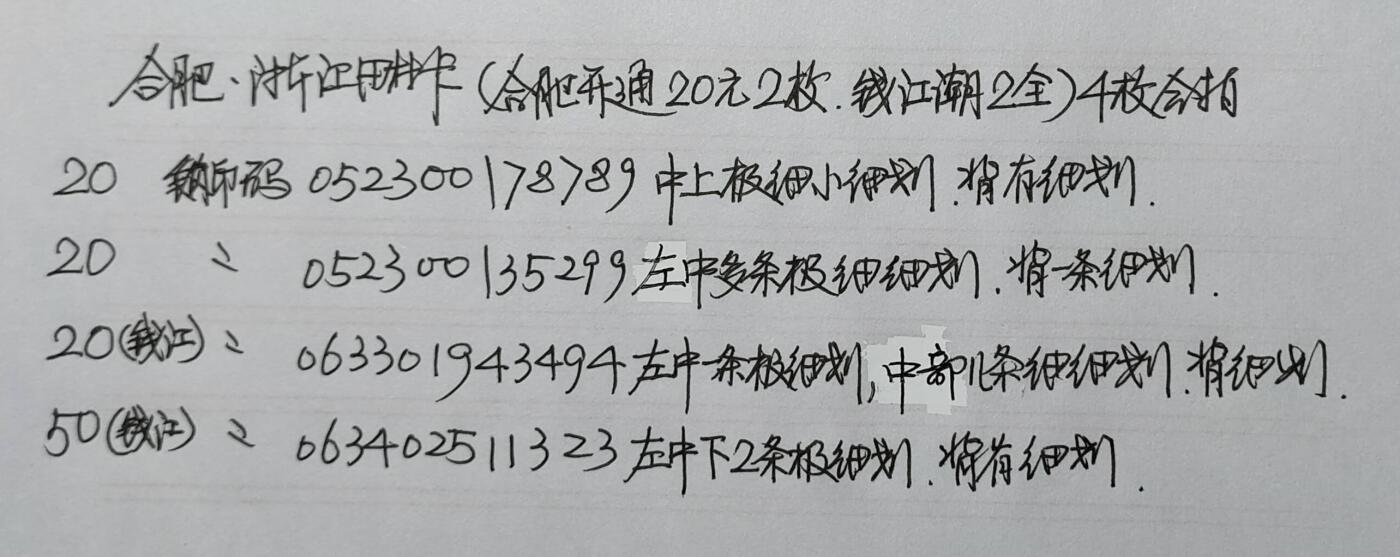 合肥·浙江田村卡(合肥开通20元2枚.钱江潮2全)4枚合拍
20 钢印码 052300178789 中上极细小细划.背有细划.
20 〃 052300135299 左中多条极细细划.背一条细划.
20(钱江)〃 063301943494 左中一条极细划,中部几条细细划.背细划.
50(钱江)〃 063402511323 左中下2条极细划.背有细划.